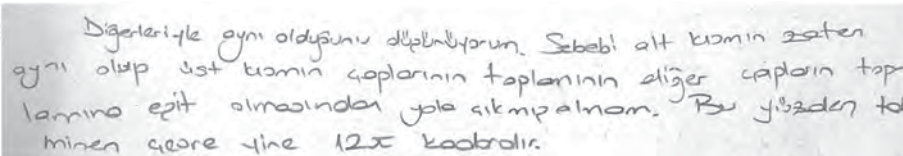 Diğerleriyle aynı olduğunu düşünüyorum. Sebebi alt kısmın zaten
aynı olup üst kısmın çaplarının toplamının diğer çapların top-
lamına eşit olmasından yola çıkmış olmam. Bu yüzden tah
minen çevre yine 12π kadardır.